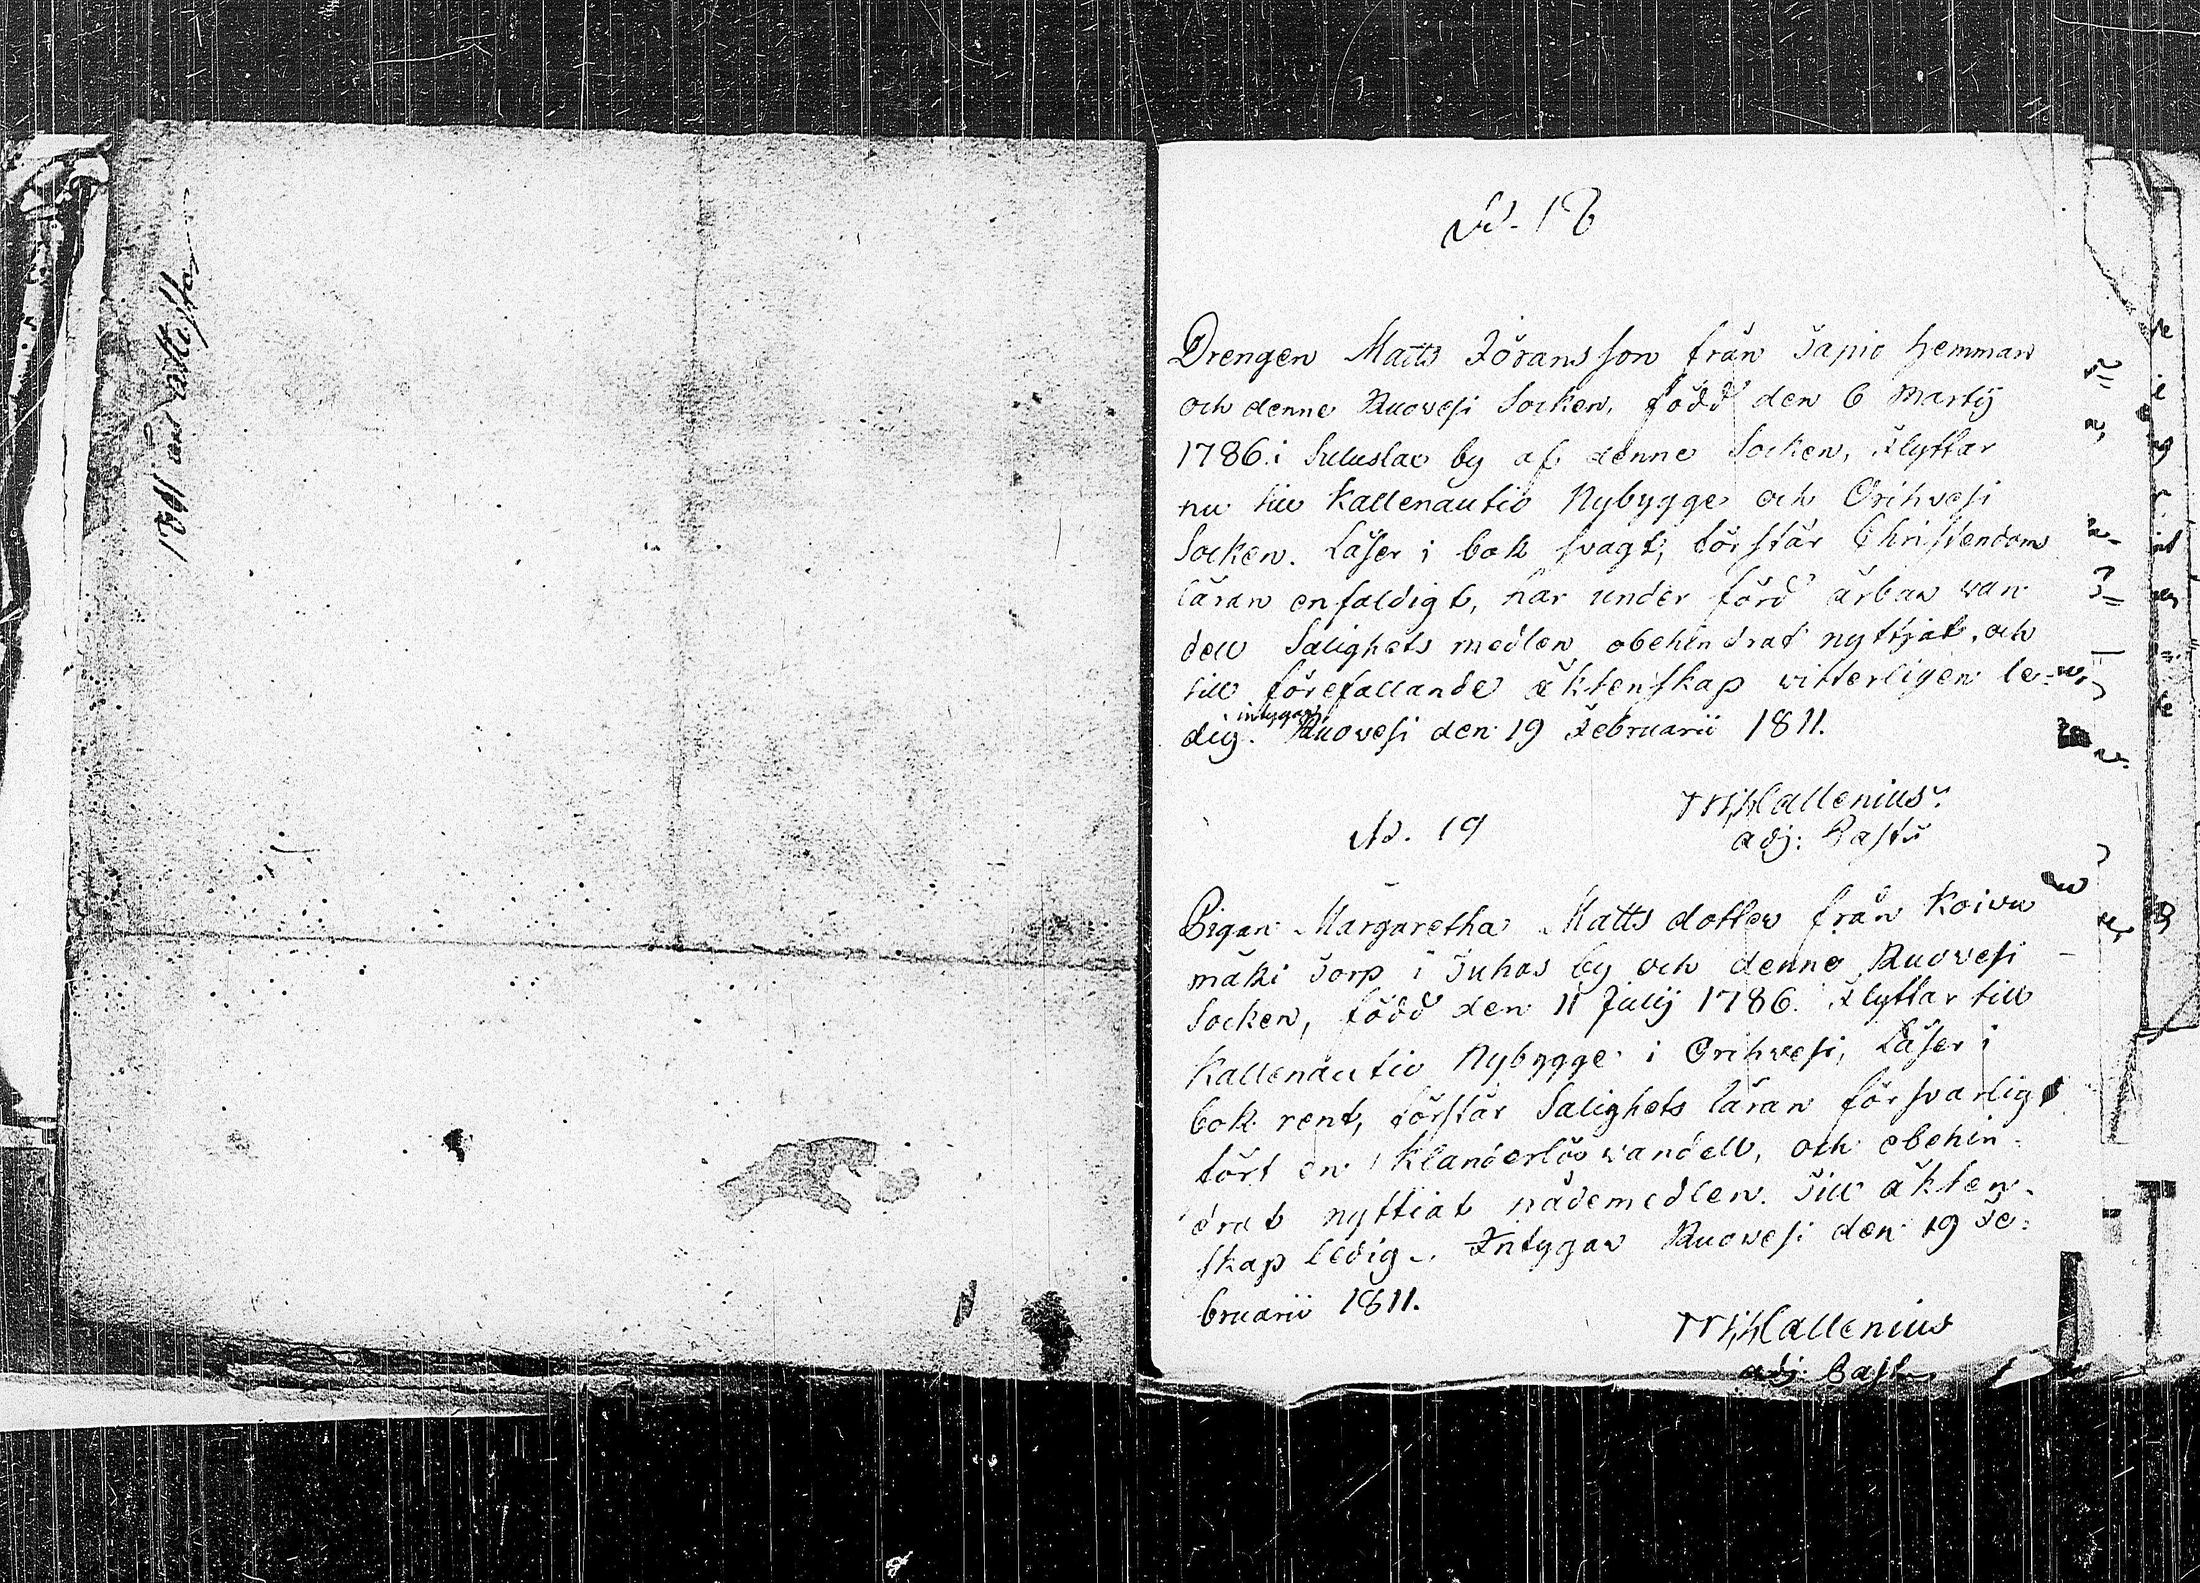 No. 18
Drengen Matts Jöransson från Tapio hemman
och denne Ruovesi Socken, född den 6 Martij
1786. i by af denne Socken, Flyttar
nu till Kallenautio Nybygge och Orihvesi
Socken. Läser i bok svagt, förstår Christendoms
läran enfaldigt, har under förd ärbar wan-
dell Salighets medlen obehindrat nyttjat, och
till förefallande äktenskap witterligen le-
dig. intygar Ruovesi den 19 Februarii 1811.
Hallenius
adj: Past:
No. 19
Pigan Margaretha Matts dotter från Koivu
mäki Torp i Juhas by och denne Ruovesi
Socken, född den 11 Julij 1786. Flyttar till
Kallenautio Nybygge i Orihvesi, Läser i
bok rent, förstår Salighets läran försvarligt
fört en Klanderlös wandell, och obehin-
drat nyttiat nådemedlen. Till äkten-
skap ledig. Intygar Ruovesi den 19 Fe-
bruarii 1811.
Hallenius
adj: Past: